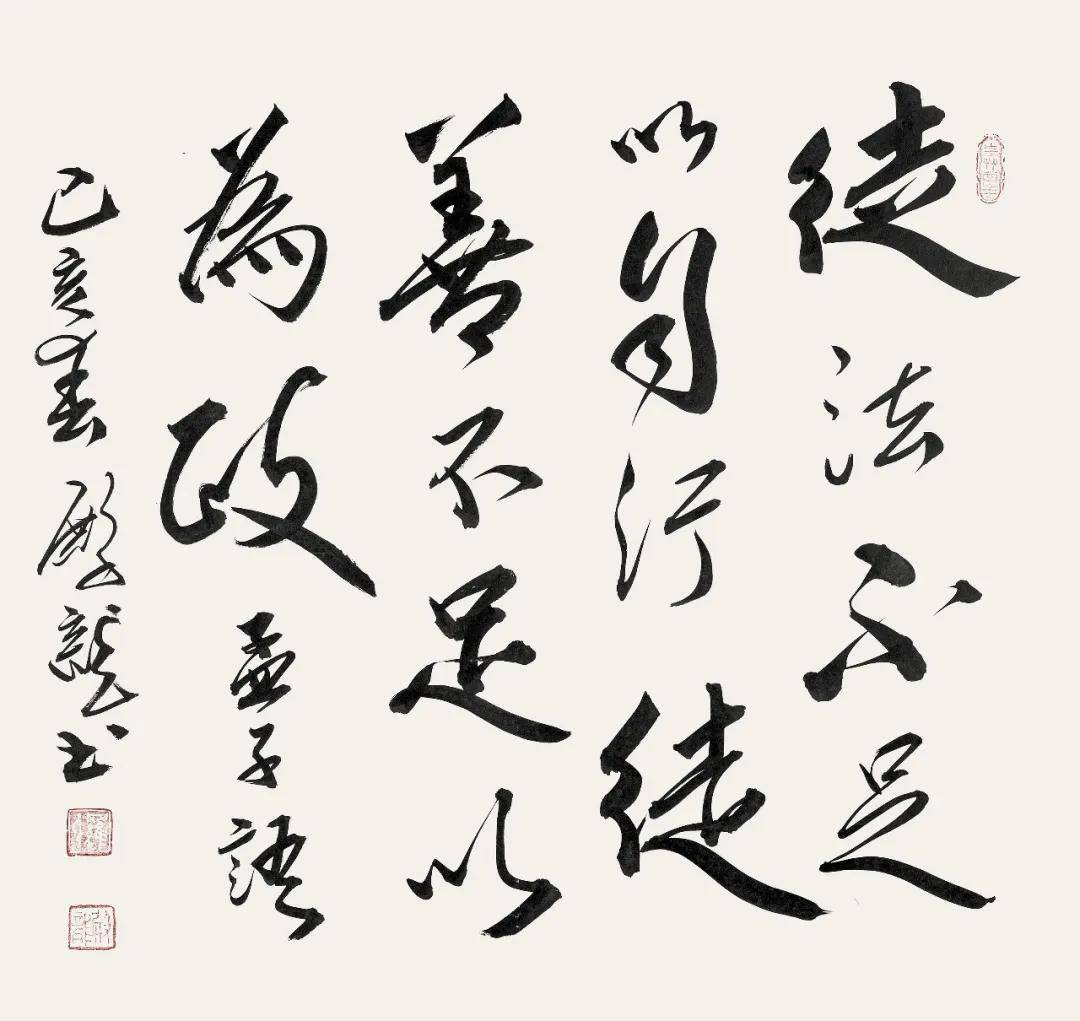 徒法不足
以自行徒
善不足以
為政孟子語
己亥春龍書